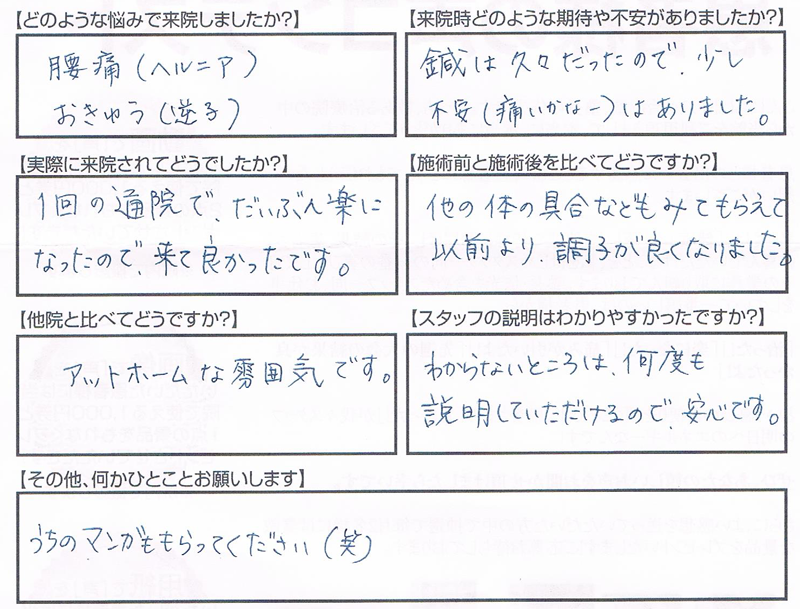 【どのような悩みで来院しましたか?】
腰痛（ヘルニア）
おきゅう（逆子）
【来院時どのような期待や不安がありましたか?】
鍼は久々だったので、少し
不安（痛いかなー）はありました。
【実際に来院されてどうでしたか?】
1回の通院で、だいぶん楽に
なったので、来て良かったです。
【施術前と施術後を比べてどうですか?】
他の体の具合などもみてもらえて
以前より、調子が良くなりました。
【他院と比べてどうですか?】
アットホームな雰囲気です。
【スタッフの説明はわかりやすかったですか?】
わからないところは、何度も
説明していただけるので、安心です。
【その他、何かひとことお願いします】
うちのマンガももらってください（笑）